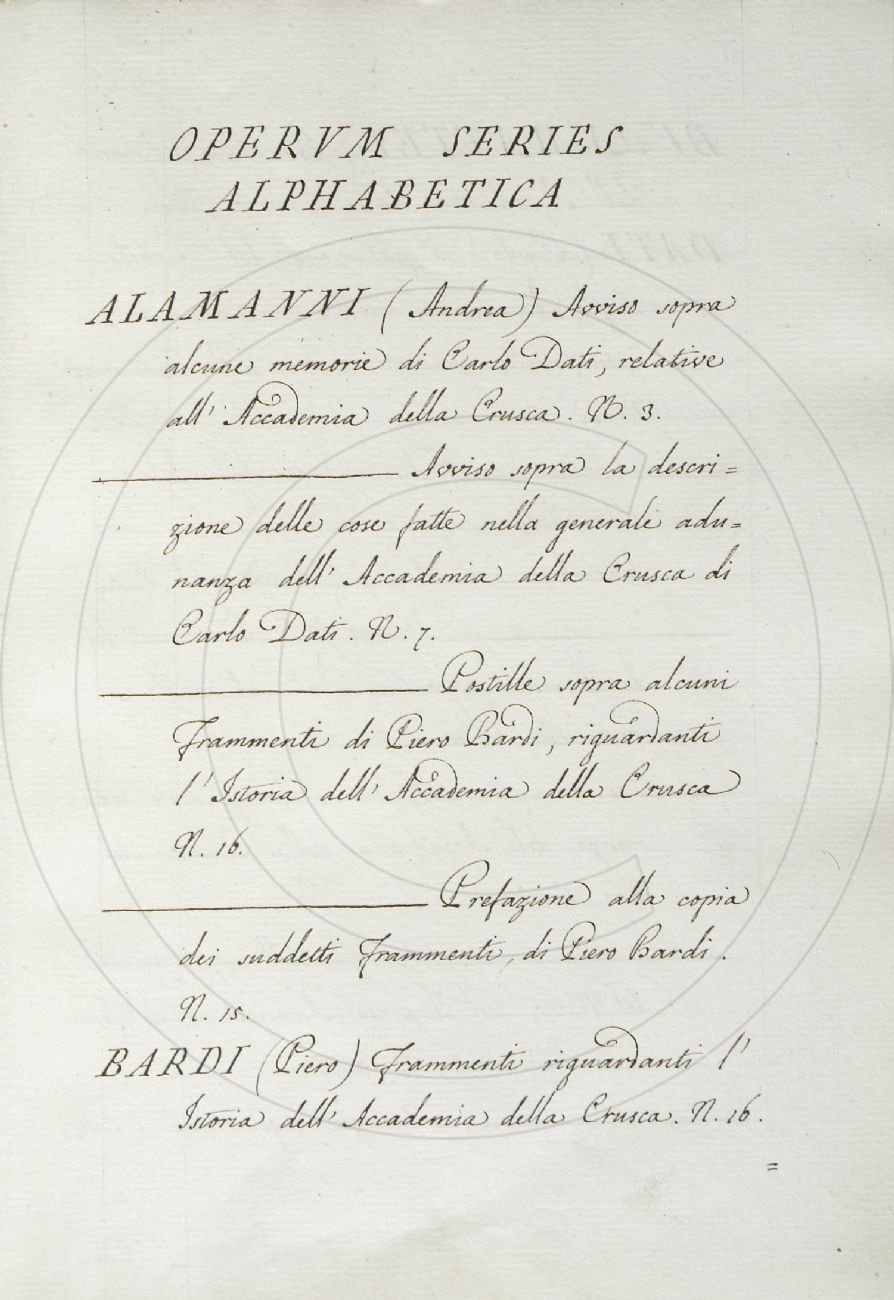 OPERVM SERIES
ALPHABETICA
ALAMANNI (Andrea) Avviso sopra
alcune memorie di Carlo Dati, relative
all' Accademia della Crusca. N. 3.
Avviso sopra la descri=
zione delle cose fatte nella generale adu=
nanza dell' Accademia della Crusca di
Carlo Dati. N. 7.
Postille sopra alcuni
Frammenti di Piero Bardi, riguardanti
l' Istoria dell' Accademia della Crusca
N. 16.
Prefazione alla copia
dei suddetti Frammenti, di Piero Bardi.
N. 15.
BARDI (Piero) Frammenti riguardanti l'
Istoria dell' Accademia della Crusca. N. 16.
=